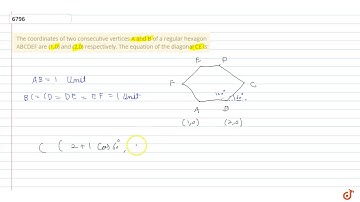 6796
The coordinates of two consecutive vertices A and B of a regular hexagon
ABCDEF are (1,0) and (2,0) respectively. The equation of the diagonal CE is:
AB = 1 Unit
BC = CD = DE = EF = 1 Unit
E D
F C
120° 60°
A B
(1,0) (2,0)
C ( 2 + 1 Cos 60°,
doubtnut